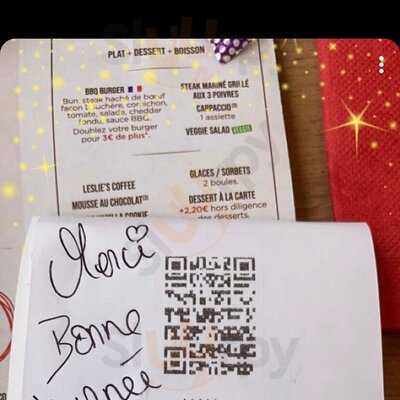 PLAT + DESSERT + BOISSON
BBQ BURGER
Bun, steak haché de bœuf
façon bouchère, cornichon,
tomate, salade, cheddar
fondu, sauce BBQ.
Doublez votre burger
pour 3€ de plus*.
STEAK MARINÉ GRILLÉ
AUX 3 POIVRES
CAPPACCIO
1 assiette
VEGGIE SALAD
LESLIE'S COFFEE
MOUSSE AU CHOCOLAT
COOKIE
GLACES / SORBETS
2 boules.
DESSERT À LA CARTE
+2,20€ hors diligence
des desserts.
Merci
Bonne